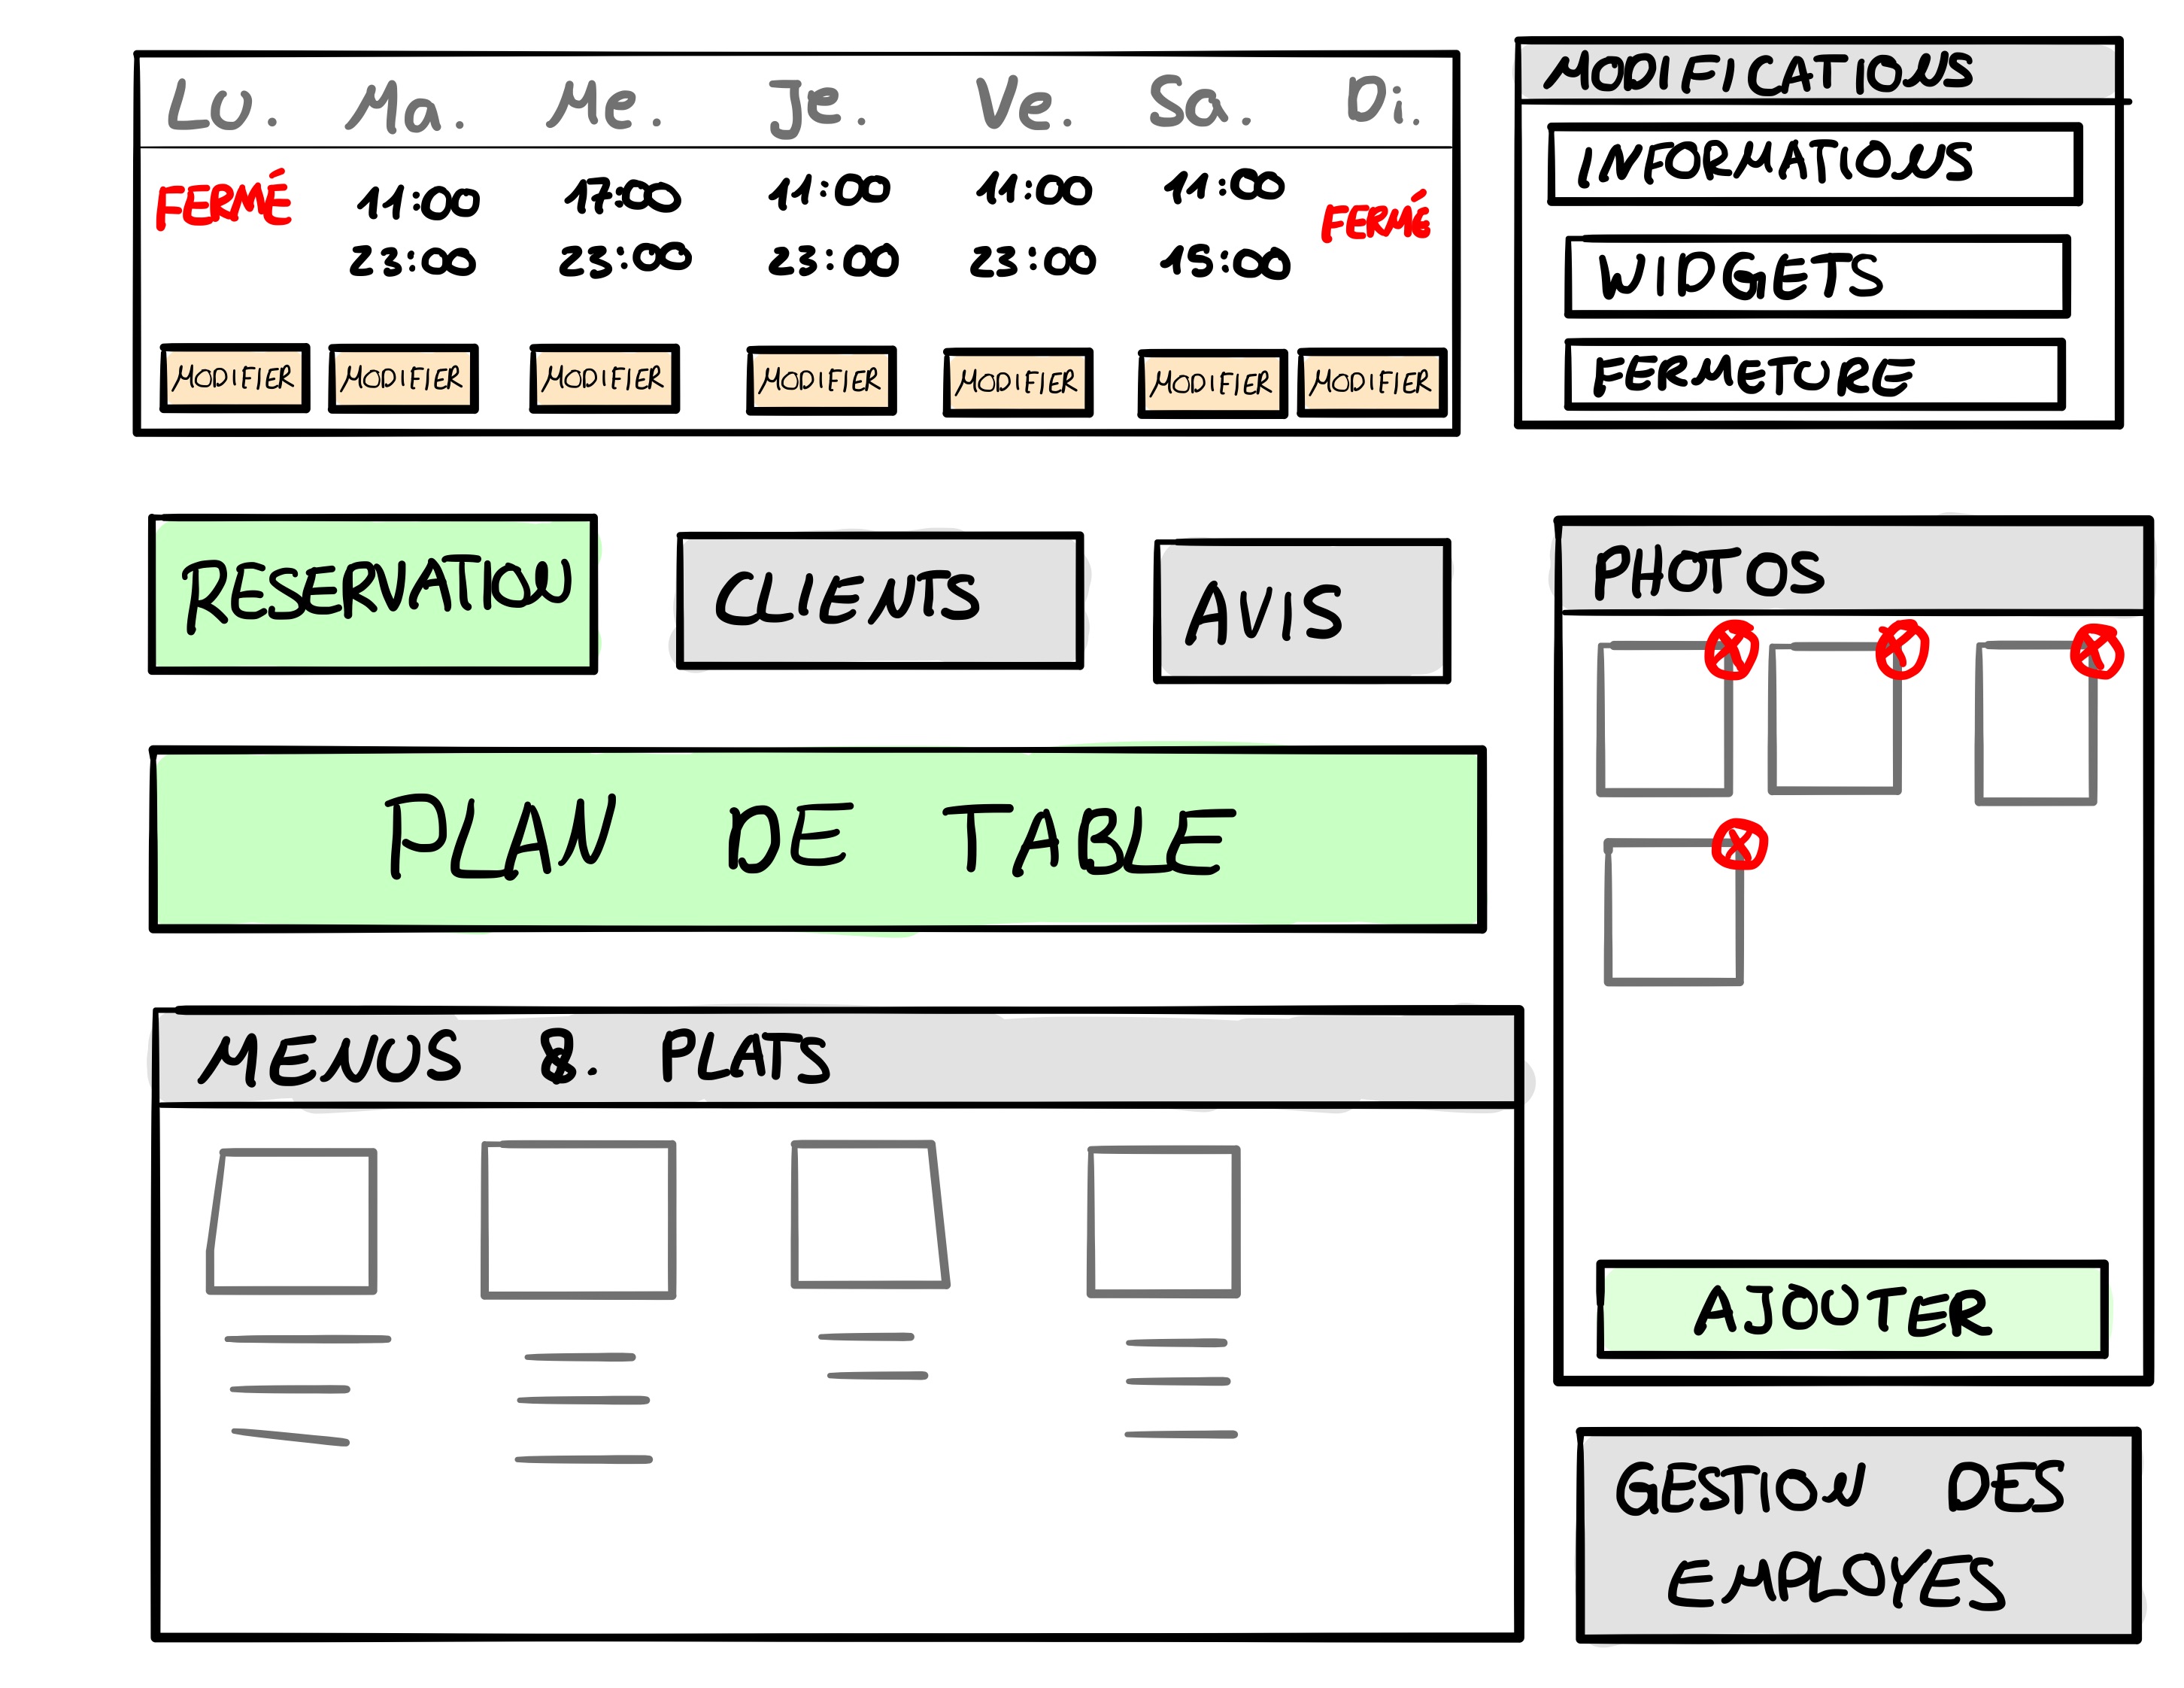 Lu. Ma. Me. Je. Ve. Sa. Di.
FERMÉ 11:00 17:00 11:00 11:00 11:00 FERMÉ
23:00 23:00 23:00 23:00 15:00
MODIFIER MODIFIER MODIFIER MODIFIER MODIFIER MODIFIER MODIFIER
MODIFICATIONS
INFORMATIONS
WIDGETS
FERMETURE
RESERVATION
CLIENTS
AVIS
PLAN DE TABLE
PHOTOS
AJOUTER
MENUS &. PLATS
GESTION DES
EMPLOYES